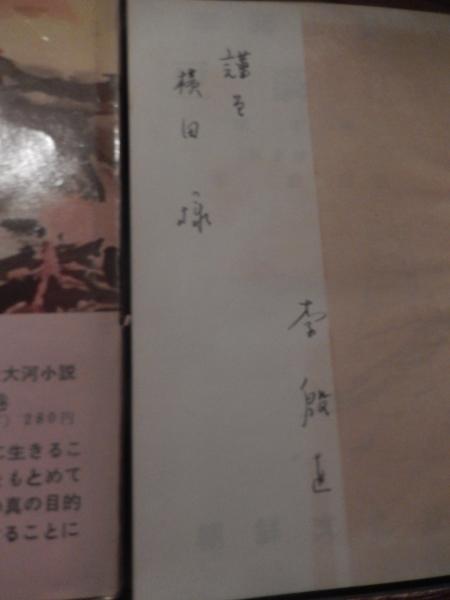 謹呈
横田 様
李殷直
大河小説
280円
に生きるこ
をもとめて
の真の目的
ることに